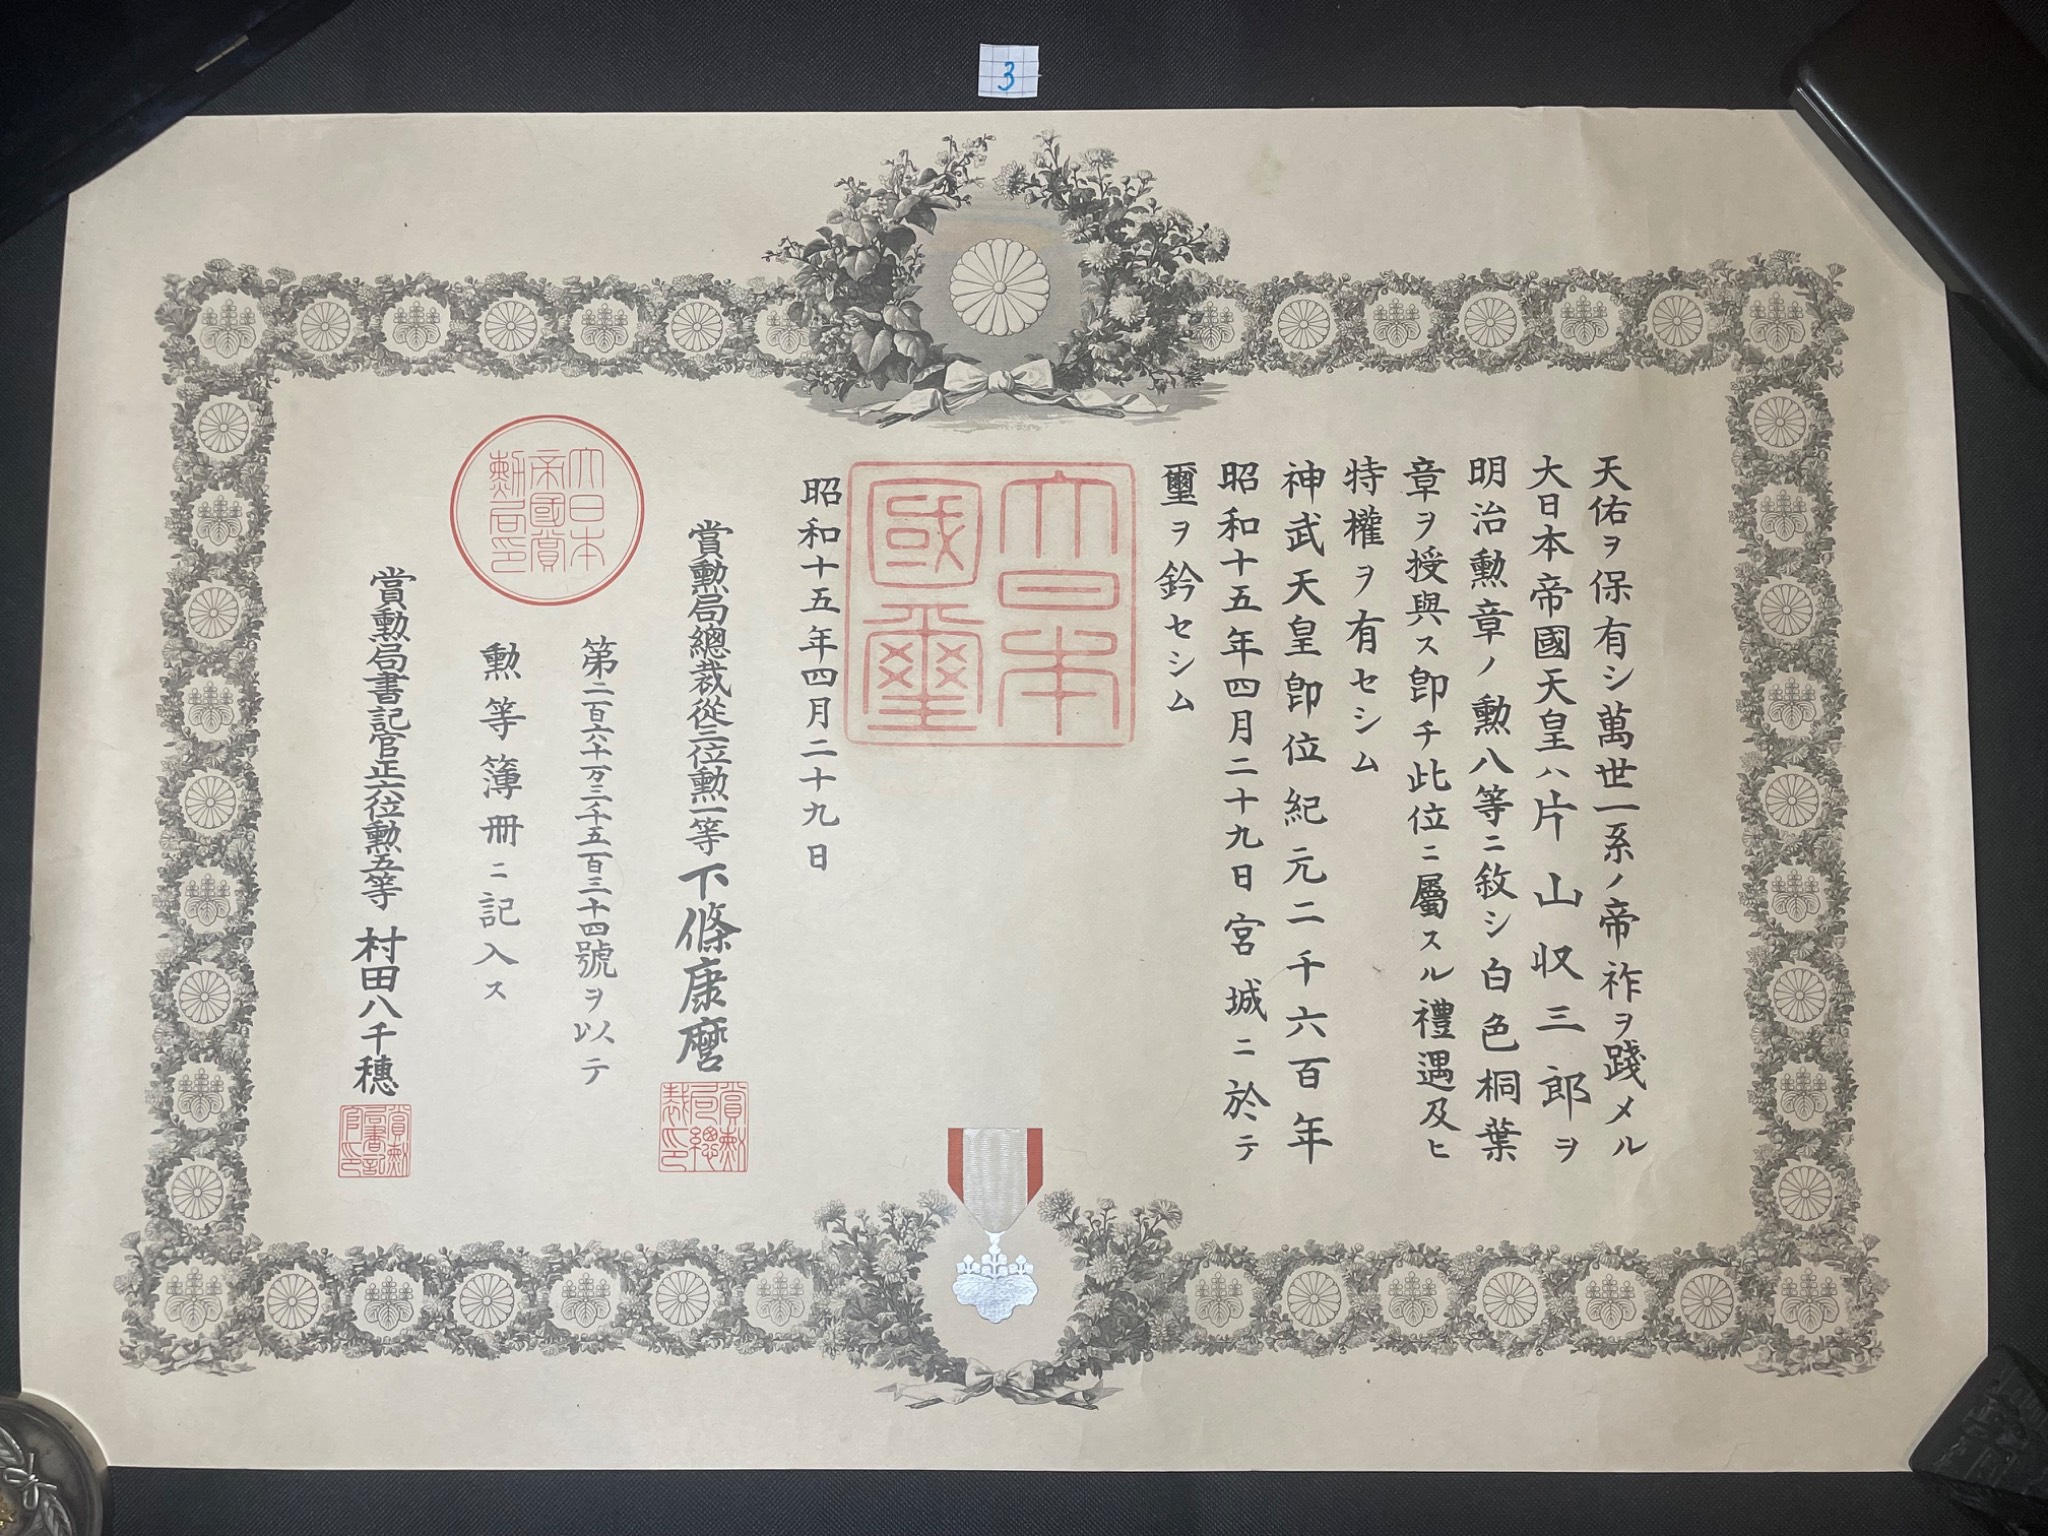 3
天佑ヲ保有シ萬世一系ノ帝祚ヲ踐メル
大日本帝國天皇ハ片山収三郎ヲ
明治勲章ノ勲八等ニ敘シ白色桐葉
章ヲ授與ス卽チ此位ニ屬スル禮遇及ヒ
特權ヲ有セシム
神武天皇卽位紀元二千六百年
昭和十五年四月二十九日宮城ニ於テ
璽ヲ鈐セシム
大日本
國璽
昭和十五年四月二十九日
賞勲局總裁從三位勲一等下條康麿
賞勲
局總
裁印
第二百六十一万三千五百三十四號ヲ以テ
勲等簿冊ニ記入ス
大日本
帝國賞
勲局印
賞勲局書記官正六位勲五等村田八千穗
賞勲
局書記
官印